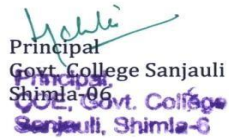 Principal
Govt. College Sanjauli
Shimla-06
Principal
COE, Govt. College
Sanjauli, Shimla-6